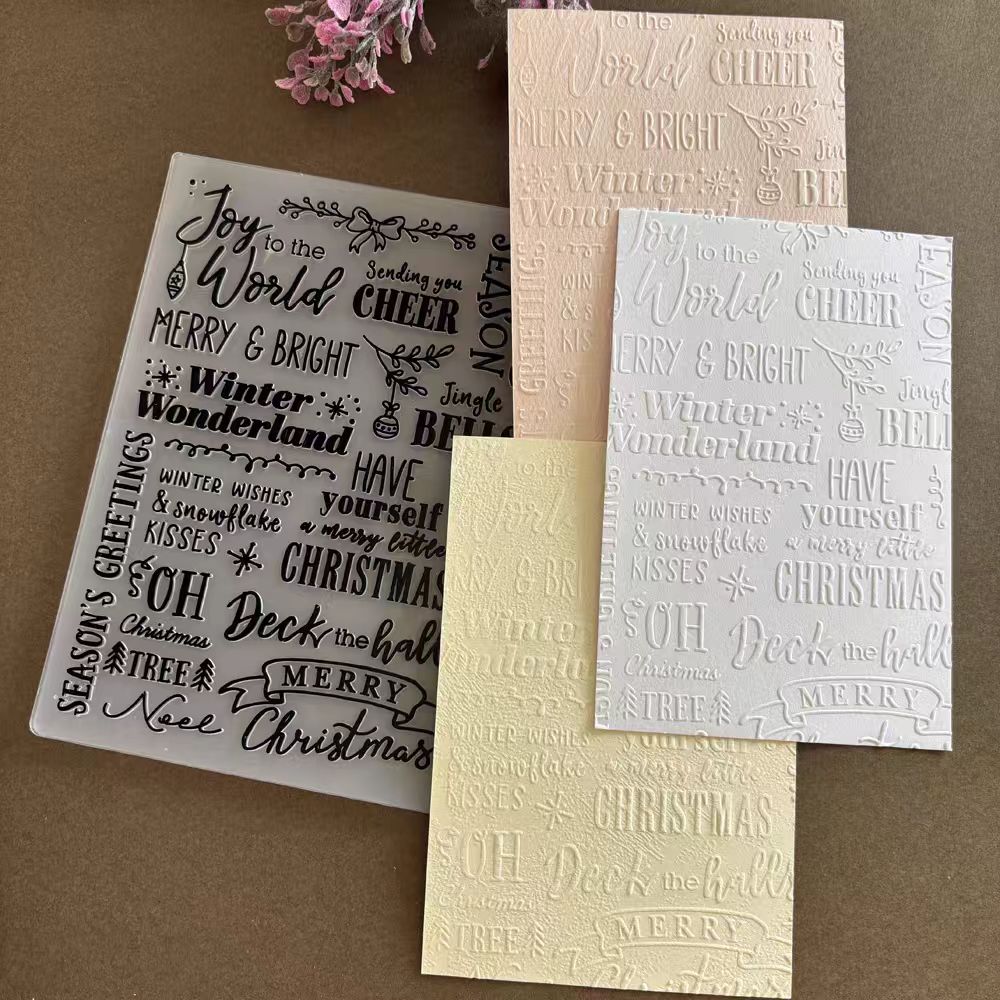 Joy
to the
World
Sending you
CHEER
SEASON
MERRY & BRIGHT
Winter
Wonderland
Jingle
BELLS
SEASON'S GREETINGS
WINTER WISHES
& snowflake
KISSES
HAVE
yourself
a merry little
CHRISTMAS
OH
Christmas
TREE
Deck the halls
MERRY
Noel
Christmas
to the
World
Sending you
CHEER
MERRY & BRIGHT
Jin
BE
Winter
Wonderland
GREETINGS
WINT
& s
KIS
Joy
to the
World
Sending you
CHEER
SEASON
ERRY & BRIGHT
Winter
Wonderland
Jingle
BELL
HAVE
WINTER WISHES
& snowflake
KISSES
yourself
a merry little
CHRISTMAS
OH
Christmas
TREE
Deck the halls
MERRY
to the
RRY & BR
Winte
onderla
WINTER WISHES
& snowflake
KISSES
yourself
a merry little
CHRISTMAS
OH
Christmas
TREE
Deck the halls
MERRY